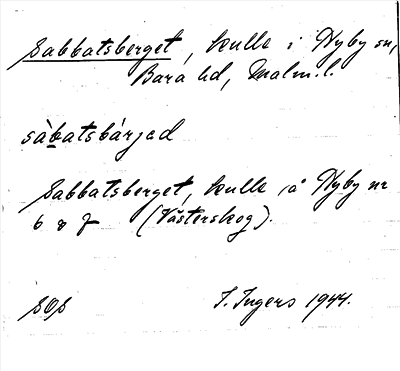 Sabbatsberget, kulle i Nyby sn,
Bara hd, Malm. l.
sàbatsbárjad
Sabbatsberget, kulle på Nyby nr
6 o 7 (Västerskog).
SOS I. Ingers 1944.